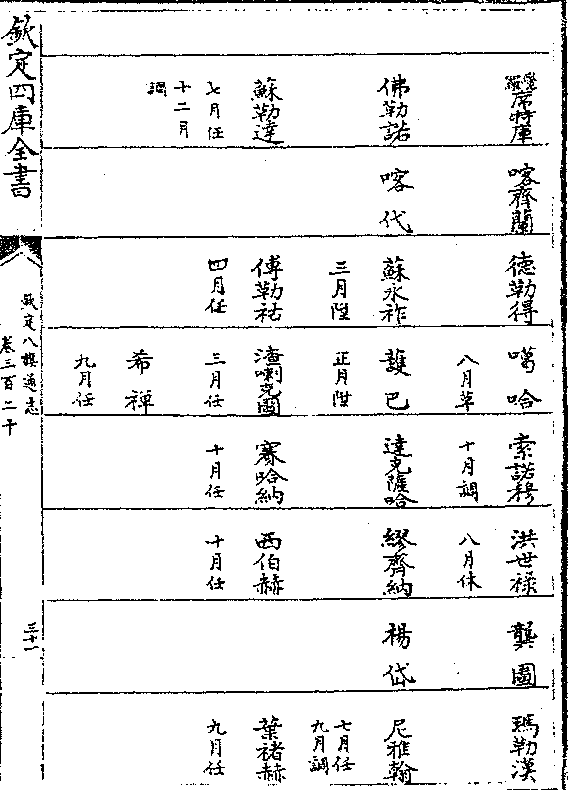 覺羅席特庫 喀齊蘭 德勒得 噶哈 索諾穆 洪世祿 龔圖 瑪勒漢
八月革 十月調 八月休
佛勒諾 喀代 蘇永祚 護巴 達克薩哈 繆齊納 楊岱 尼雅翰
三月陞 正月陞 七月任
九月調
蘇勒達 傅勒祜 渣喇克圖 賽哈納 西伯赫 葉褚赫
七月任 四月任 三月任 十月任 十月任 九月任
十二月
調
希禪
九月任
欽定四庫全書
欽定八旗通志
卷三百二十
三十一